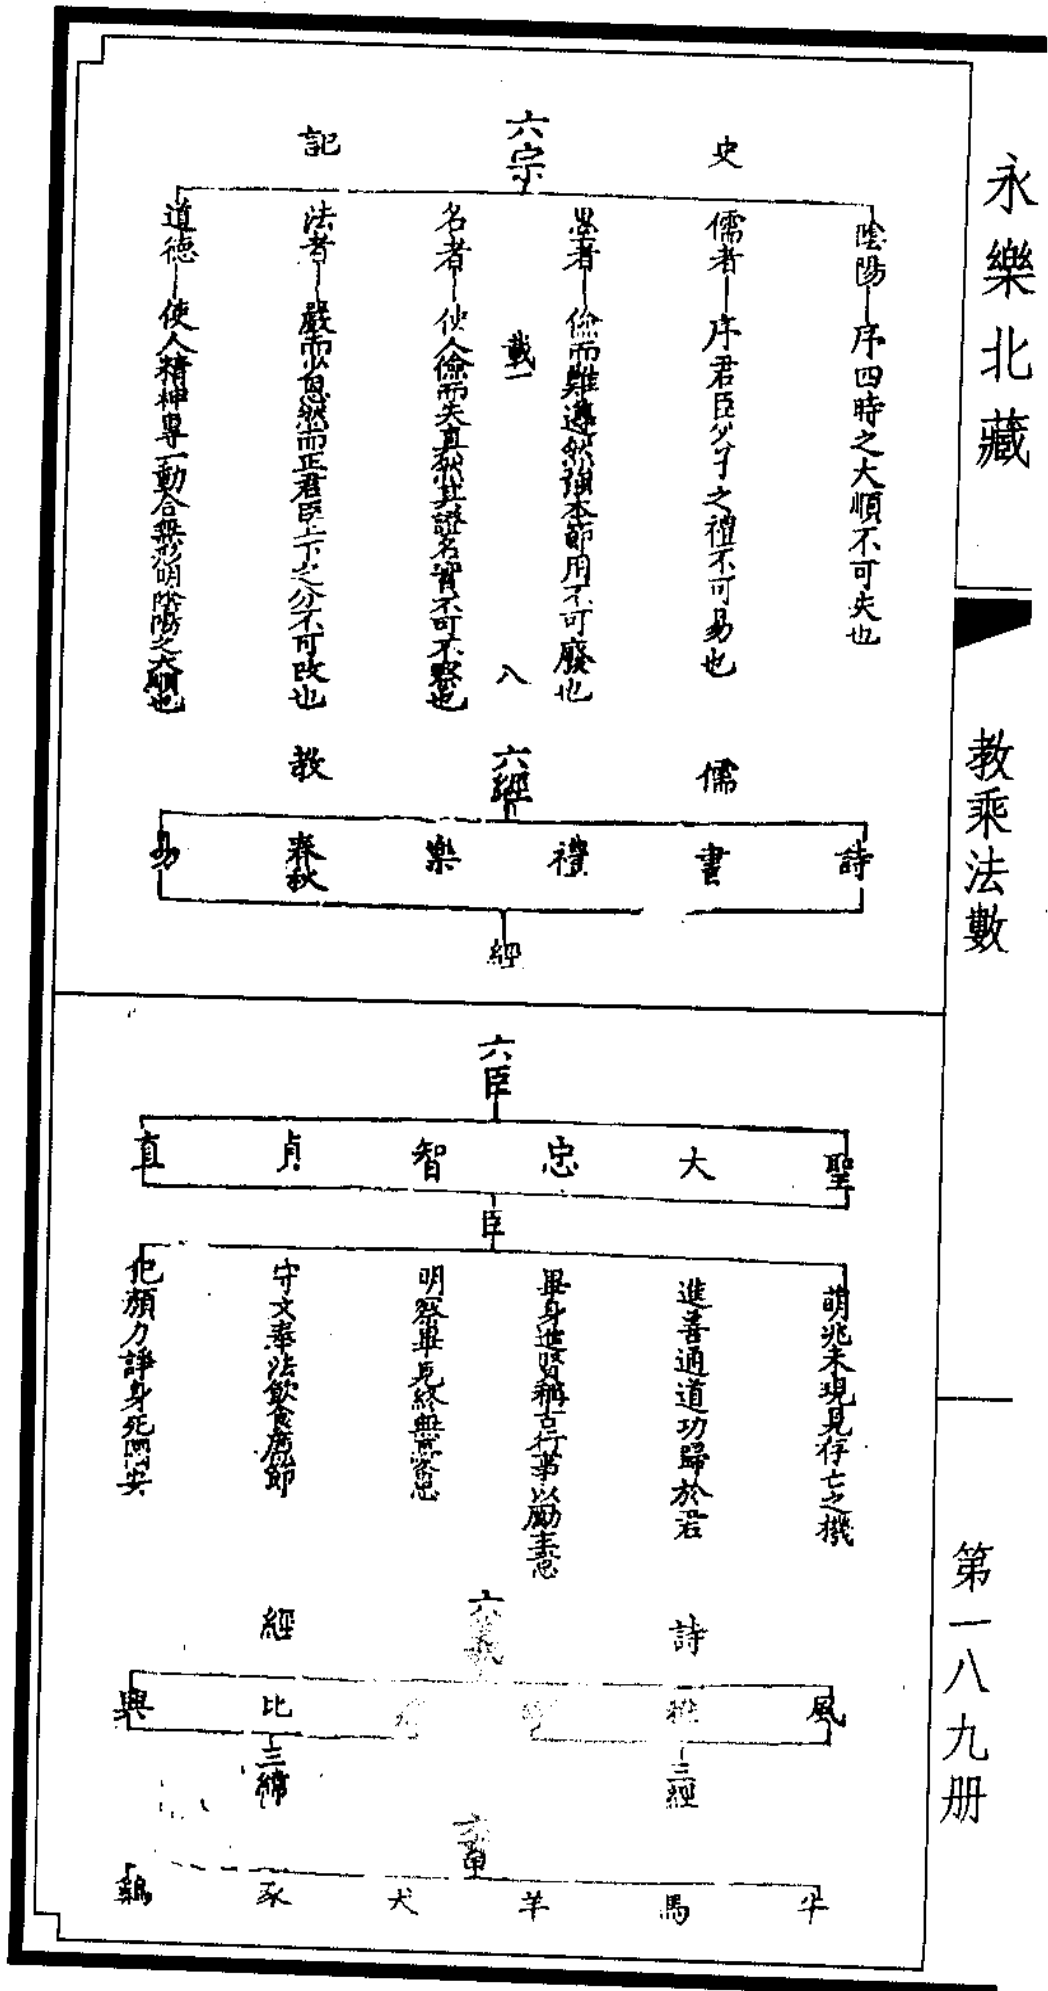 永樂北藏
教乘法數
第一八九册
史
六宗
記
陰陽—序四時之大順不可失也
儒者—序君臣父子之禮不可易也
墨者—儉而難遵然強本節用不可廢也
載一
八
名者—使人儉而失真然其證名實不可不察也
法者—嚴而少恩然而正君臣上下之分不可改也
道德—使人精神專一動合無形明陰陽之大順也
儒
六經
教
詩
書
禮
樂
春秋
易
經
六臣
聖
大
忠
智
貞
直
臣
萌兆未現見存亡之機
進善通道功歸於君
畢身進賢稱古行事以勵主意
明察畢見終無
守文奉法飲食廉節
犯顏力諍身死國安
詩
六義
經
風
雅
比
興
三經
三緯
六畜
牛
馬
羊
犬
豕
鷄